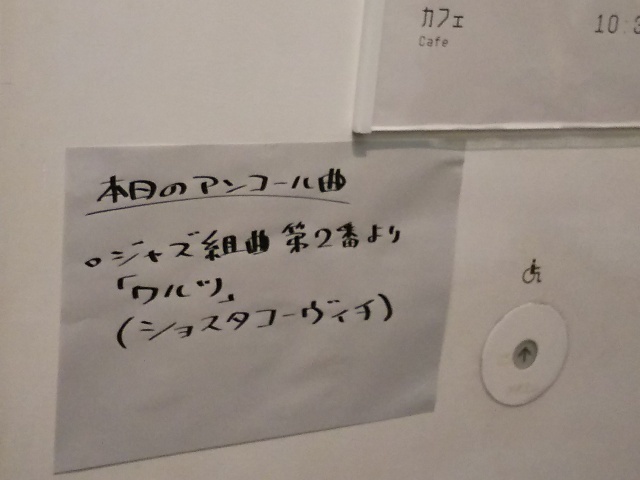 カフェ
Cafe
本日のアンコール曲
○ジャズ組曲 第2番より
「ワルツ」
(ショスタコーヴィチ)